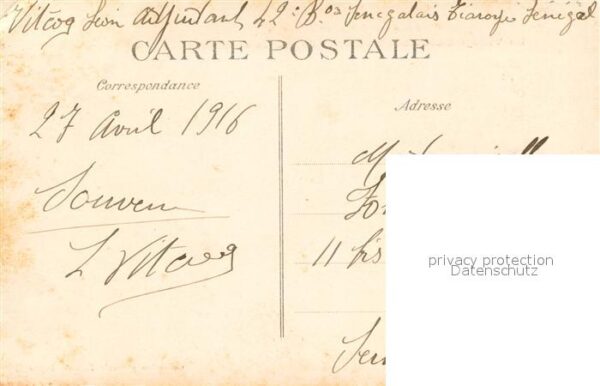 Vitcoq Léon Adjudant 22e Bon Sénégalais Tiaroye Sénégal
CARTE POSTALE
Correspondance
Adresse
27 Avril 1916
Souvenir
L Vitcoq
11 bis
privacy protection
Datenschutz